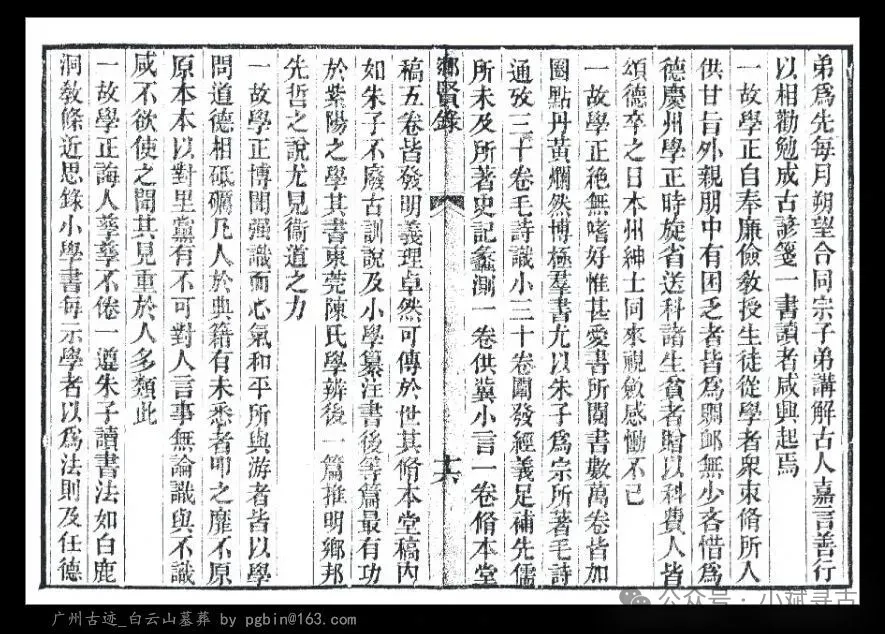 弟爲先每月朔望合同宗子弟講解古人嘉言善行
以相勸勉成古諺箋一書讀者咸興起焉
一故學正自奉廉儉敎授生徒從學者衆束脩所入
供甘旨外親朋中有困乏者皆爲賙卹無少吝惜爲
德慶州學正時旋省送科諸生貧者贈以科費人皆
頌德卒之日本州紳士同來視斂感慟不已
一故學正絶無嗜好惟甚愛書所閱書數萬卷皆加
圈點丹黃爛然博極羣書尤以朱子爲宗所著毛詩
通攷三十卷毛詩識小三十卷闡發經義足補先儒
所未及所著史記蠡測一卷供冀小言一卷脩本堂
鄉賢錄
十六
稿五卷皆發明義理卓然可傳於世其脩本堂稿內
如朱子不廢古訓說及小學纂注書後等篇最有功
於紫陽之學其書東莞陳氏學辨後一篇推明鄉邦
先哲之說尤見衞道之力
一故學正博聞强識而心氣和平所與游者皆以學
問道德相砥礪凡人於典籍有未悉者叩之靡不原
原本本以對里黨有不可對人言事無論識與不識
咸不欲使之聞其見重於人多類此
一故學正誨人孳孳不倦一遵朱子讀書法如白鹿
洞敎條近思錄小學書每示學者以爲法則及任德
广州古迹_白云山墓葬 by pgbin@163.com
公众号·小斌寻古